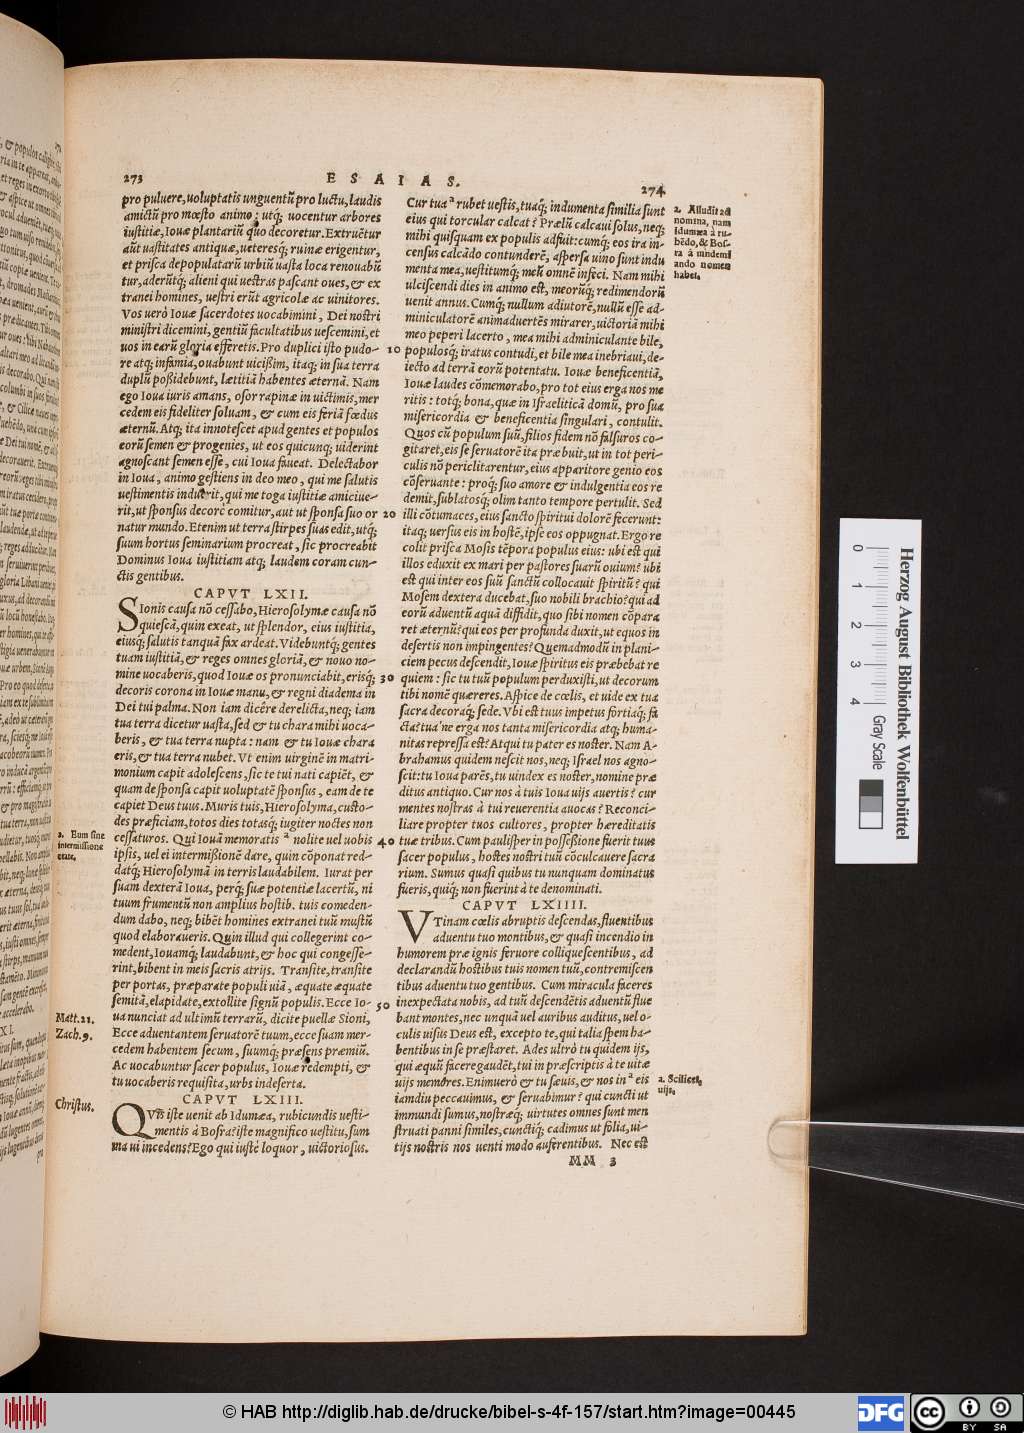 273
ESAIAS.
274
pro puluere, uoluptatis unguentũ pro luctu, laudis
amictũ pro mœsto animo: utq; uocentur arbores
iustitiæ, Iouæ plantariũ quo decoretur. Extruẽtur
aũt uastitates antiquæ, ueteresq; ruinæ erigentur,
et prisca depopulatarũ urbiũ uasta loca renouabũ
tur, aderũtq; alieni qui uestras pascant oues, & ex
tranei homines, uestri erũt agricolæ ac uinitores.
Vos uerò Iouæ sacerdotes uocabimini, Dei nostri
ministri dicemini, gentiũ facultatibus uescemini, et
uos in earũ gloria efferetis. Pro duplici isto pudo-
re atq; infamia, ouabunt uicißim, itaq; in sua terra
duplũ poßidebunt, lætitiã habentes æternã. Nam
ego Ioua iuris amans, osor rapinæ in uictimis, mer
cedem eis fideliter soluam, & cum eis feriã fœdus
æternũ. Atq; ita innotescet apud gentes et populos
eorũ semen & progenies, ut eos quicunq; uiderint
agnoscant semen esse, cui Ioua faueat. Delectabor
in Ioua, animo gestiens in deo meo, qui me salutis
uestimentis induerit, qui me toga iustitiæ amiciue-
rit, ut sponsus decorè comitur, aut ut sponsa suo or
natur mundo. Etenim ut terra stirpes suas edit, utq;
suum hortus seminarium procreat, sic procreabit
Dominus Ioua iustitiam atq; laudem coram cun-
ctis gentibus.
CAPVT LXII.
Sionis causa nõ cessabo, Hierosolymæ causa nõ
quiescã, quin exeat, ut splendor, eius iustitia,
eiusq; salutis tanquã fax ardeat. Videbuntq; gentes
tuam iustitiã, & reges omnes gloriã, & nouo no-
mine uocaberis, quod Iouæ os pronunciabit, erisq;
decoris corona in Iouæ manu, & regni diadema in
Dei tui palma. Non iam dicêre derelicta, neq; iam
tua terra dicetur uasta, sed & tu chara mihi uoca-
beris, & tua terra nupta: nam & tu Iouæ chara
eris, & tua terra nubet. Vt enim uirginẽ in matri-
monium capit adolescens, sic te tui nati capiẽt, &
quam de sponsa capit uoluptatẽ sponsus, eam de te
capiet Deus tuus. Muris tuis, Hierosolyma, custo-
des præficiam, totos dies totasq; iugiter noctes non
cessaturos. Qui Iouã memoratis a nolite uel uobis
ipsis, uel ei intermißionẽ dare, quin cõponat red-
datq; Hierosolymã in terris laudabilem. Iurat per
suam dexterã Ioua, perq; suæ potentiæ lacertũ, ni
tuum frumentũ non amplius hostib. tuis comeden-
dum dabo, neq; bibẽt homines extranei tuũ mustũ
quod elaboraueris. Quin illud qui collegerint co-
medent, Iouamq; laudabunt, & hoc qui congesse-
rint, bibent in meis sacris atrijs. Transite, transite
per portas, præparate populi uiã, æquate æquate
semitã, elapidate, extollite signũ populis. Ecce Io-
ua nunciat ad ultimũ terrarũ, dicite puellæ Sioni,
Ecce aduentantem seruatorẽ tuum, ecce suam mer-
cedem habentem secum, suumq; præsens præmiũ.
Ac uocabuntur sacer populus, Iouæ redempti, &
tu uocaberis requisita, urbs indeserta.
CAPVT LXIII.
Quis iste uenit ab Idumæa, rubicundis uesti-
mentis à Bosra? iste magnifico uestitu, sum
ma ui incedens? Ego qui iustè loquor, uictoriosus.
a. Eum sine
intermissione
orate.
Matt. 21.
Zach. 9.
Christus.
10
20
30
40
50
Cur tua a rubet uestis, tuaq; indumenta similia sunt
eius qui torcular calcat? Prælũ calcaui solus, neq;
mihi quisquam ex populis adfuit: cumq; eos ira in-
census calcãdo contunderẽ, aspersa uino sunt indu
menta mea, uestitumq; meũ omnẽ infeci. Nam mihi
ulciscendi dies in animo est, meorũq; redimendorũ
uenit annus. Cumq; nullum adiutorẽ, nullũ esse ad-
miniculatorẽ animaduertẽs mirarer, uictoriã mihi
meo peperi lacerto, mea mihi adminiculante bile,
populosq; iratus contudi, et bile mea inebriaui, de-
iecto ad terrã eorũ potentatu. Iouæ beneficentiã,
Iouæ laudes cõmemorabo, pro tot eius erga nos me
ritis: totq; bona, quæ in Israeliticã domũ, pro sua
misericordia & beneficentia singulari, contulit.
Quos cũ populum suũ, filios fidem nõ falsuros co-
gitaret, eis se seruatorẽ ita præbuit, ut in tot peri-
culis nõ periclitarentur, eius apparitore genio eos
cõseruante: proq; suo amore & indulgentia eos re
demit, sublatosq; olim tanto tempore pertulit. Sed
illi cõtumaces, eius sancto spiritui dolorẽ fecerunt:
itaq; uersus eis in hostẽ, ipse eos oppugnat. Ergo re
colit prisca Mosis tẽpora populus eius: ubi est qui
illos eduxit ex mari per pastores suarũ ouium? ubi
est qui inter eos suũ sanctũ collocauit spiritũ? qui
Mosem dextera ducebat, suo nobili brachio? qui ad
eorũ aduentũ aquã diffidit, quo sibi nomen cõpara
ret æternũ? qui eos per profunda duxit, ut equos in
desertis non impingentes? Quemadmodũ in plani-
ciem pecus descendit, Iouæ spiritus eis præbebat re
quiem: sic tu tuũ populum perduxisti, ut decorum
tibi nomẽ quæreres. Aspice de cœlis, et uide ex tua
sacra decoraq; sede. Vbi est tuus impetus fortiaq; fa
cta? tua'ne erga nos tanta misericordia atq; huma-
nitas repressa est? Atqui tu pater es noster. Nam A-
brahamus quidem nescit nos, neq; Israel nos agno-
scit: tu Ioua parẽs, tu uindex es noster, nomine præ
ditus antiquo. Cur nos à tuis Ioua uijs auertis? cur
mentes nostras à tui reuerentia auocas? Reconci-
liare propter tuos cultores, propter hæreditatis
tuæ tribus. Cum paulisper in posseßione fuerit tuus
sacer populus, hostes nostri tuũ cõculcauere sacra
rium. Sumus quasi quibus tu nunquam dominatus
fueris, quiq; non fuerint à te denominati.
CAPVT LXIIII.
Vtinam cœlis abruptis descendas, fluentibus
aduentu tuo montibus, & quasi incendio in
humorem præ ignis feruore colliquescentibus, ad
declarandũ hostibus tuis nomen tuũ, contremiscen
tibus aduentu tuo gentibus. Cum miracula faceres
inexpectata nobis, ad tuũ descendẽtis aduentũ flue
bant montes, nec unquã uel auribus auditus, uel o-
culis uisus Deus est, excepto te, qui talia spem ha-
bentibus in se præstaret. Ades ultrò tu quidem ijs,
qui æquũ facere gaudẽt, tui in præscriptis à te uitæ
uijs memores. Enimuerò & tu sæuis, & nos in a eis
iamdiu peccauimus, & seruabimur? qui cuncti ut
immundi sumus, nostræq; uirtutes omnes sunt men
struati panni similes, cunctiq; cadimus ut folia, ui-
tijs nostris nos uenti modo auferentibus. Nec est
MM 3
a. Alludit ad
nomina, nam
Idumæa à ru-
bẽdo, & Bos-
ra à uindemi
ando nomen
habet.
a. Scilicet,
uijs.
Herzog August Bibliothek Wolfenbüttel
0 1 2 3 4
Gray Scale
© HAB http://diglib.hab.de/drucke/bibel-s-4f-157/start.htm?image=00445
DFG
cc BY SA